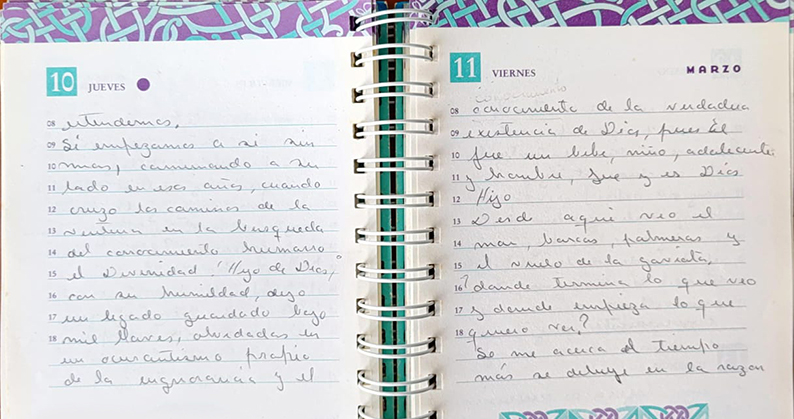 10 JUEVES
08 entendernos.
09 Si empezamos a si sin
10 mas, caminando a su
11 lado en esos años, cuando
12 cruzo los caminos de la
13 en la busqueda
14 del conocimiento humano
15 el Divinidad "Hijo de Dios,"
16 con su humildad, dejo
17 un legado guardado bajo
18 mil llaves, olvidadas en
un ocurantismo propio
de la ingnorancia y el
11 VIERNES MARZO
08 conocimiento de la verdadera
09 existencia de Dios, pues El
10 fue un bebe, niño, adolecente
11 y hombre, fue y es Dios
12 Hijo
13 Desde aqui veo el
14 mar, barcas, palmeras y
15 el vuelo de la gaviota,
16 ? donde termina lo que veo
17 y donde empieza lo que
18 quiero ver?
Se me acerca el tiempo
más se en la razon